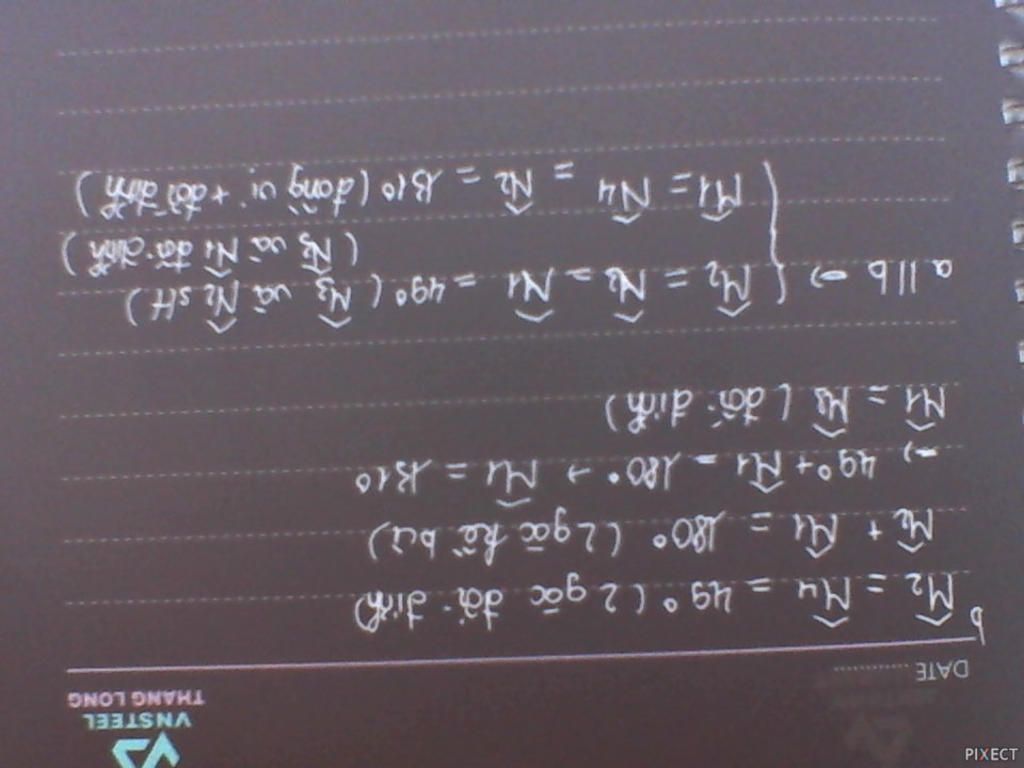 VNSTEEL
THANG LONG
DATE
b
M̂2 = M̂4 = 49° (2 góc đối đỉnh)
M̂2 + M̂1 = 180° (2 góc kề bù)
→ 49° + M̂1 = 180° → M̂1 = 131°
M̂1 = M̂3 (đối đỉnh)
a // b → { M̂2 = N̂2 = N̂1 = 49° (M̂3 và N̂2 slt)
(N̂3 và N̂1 đối đỉnh)
M̂1 = N̂4 = N̂2 = 131° (đồng vị + đối đỉnh)
PIXECT